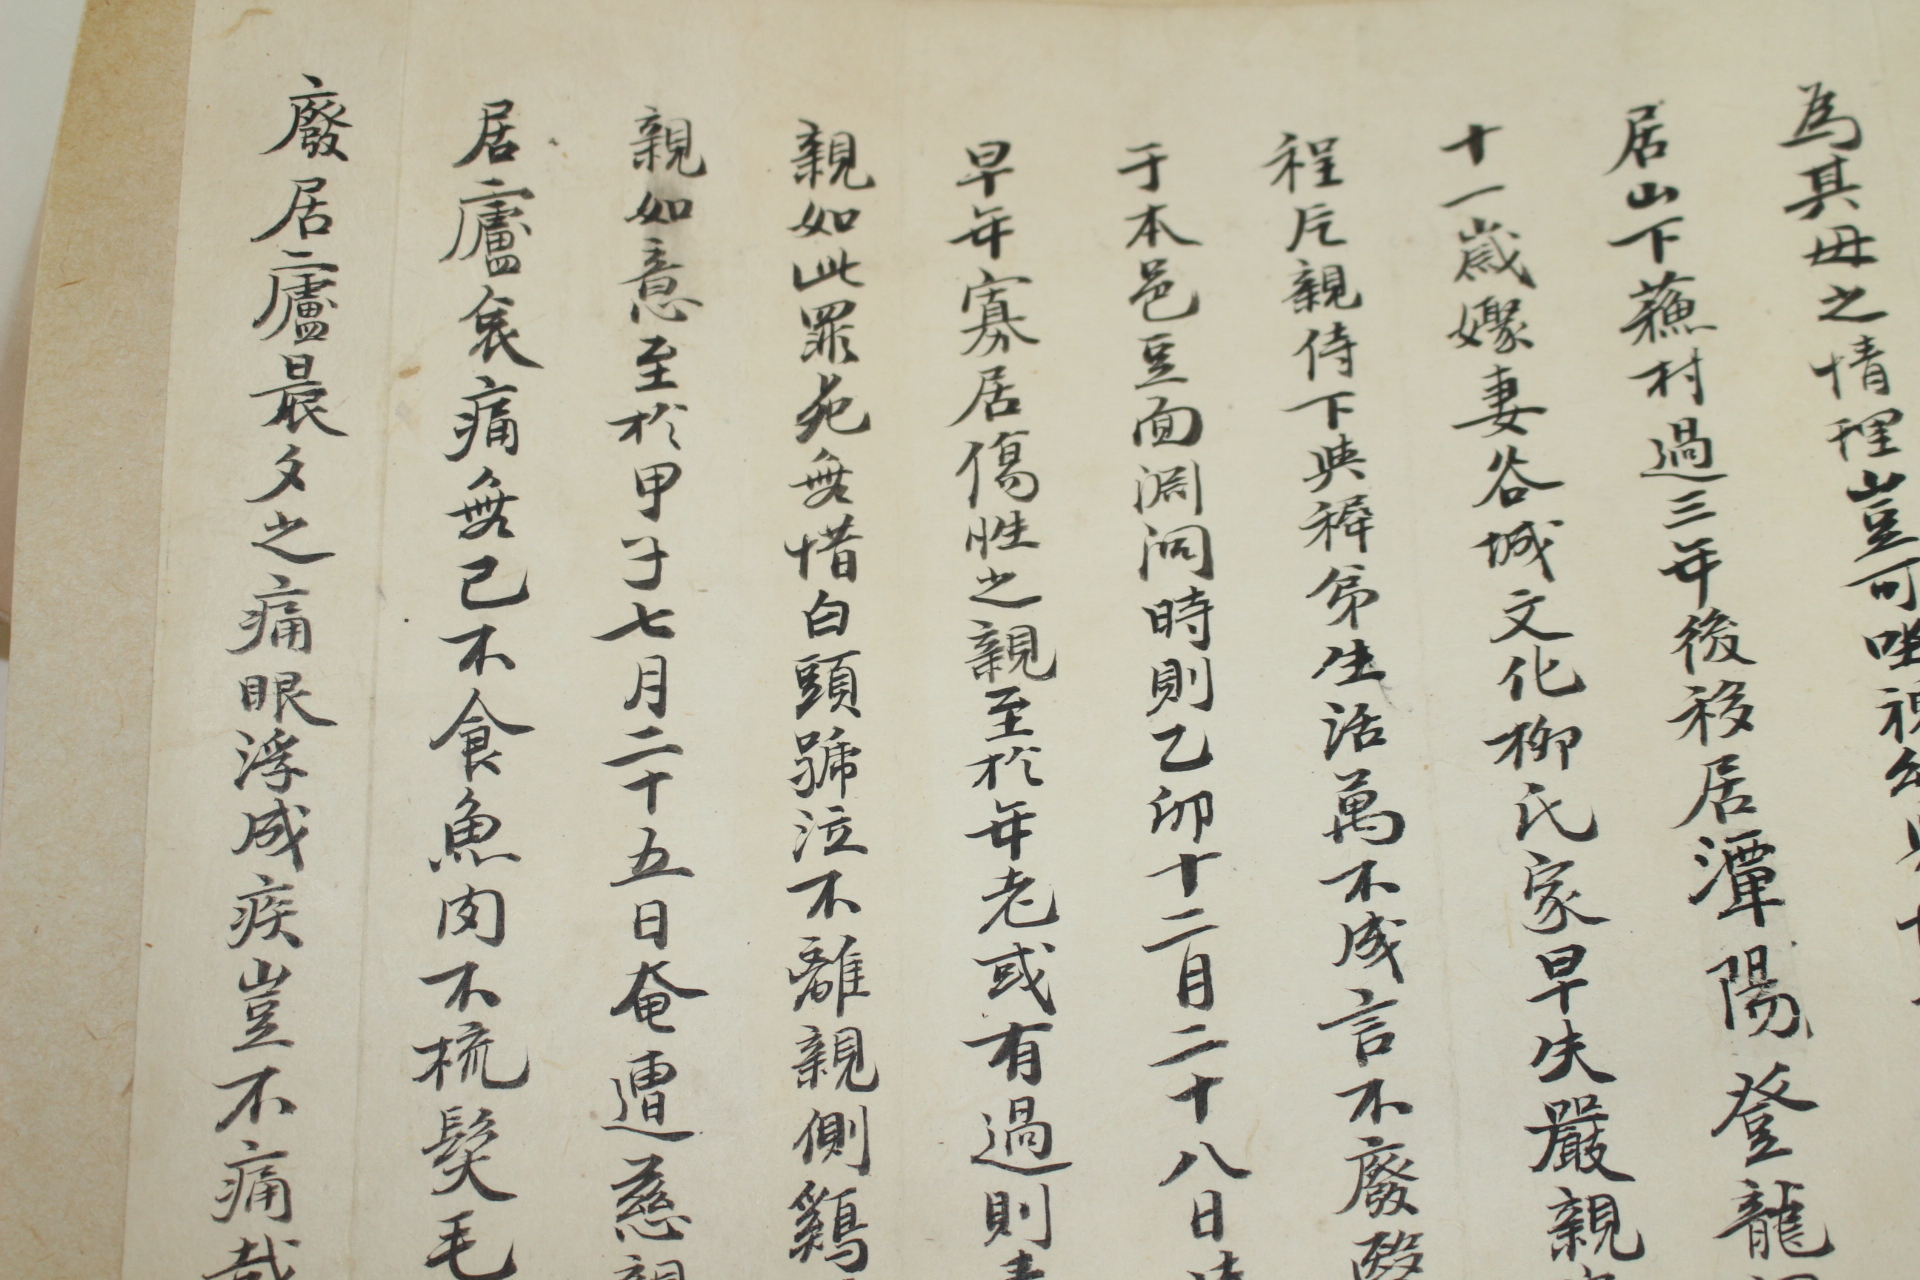 為其母之情理豈可
居山下蘓村過三年後移居潭陽登龍
十一歲嫁妻谷城文化柳氏家早失嚴親
程片親侍下與稺弟生活萬不成言不廢
于本邑豆面洞洞時則乙卯十二月二十八日
早年寡居傷性之親至於年老或有過則
親如此罪死無惜白頭號泣不離親側鷄
親如意至於甲子七月二十五日奄遭慈親
居廬哀痛無已不食魚肉不梳髮毛
廢居廬晨夕之痛眼浮成疾豈不痛哉